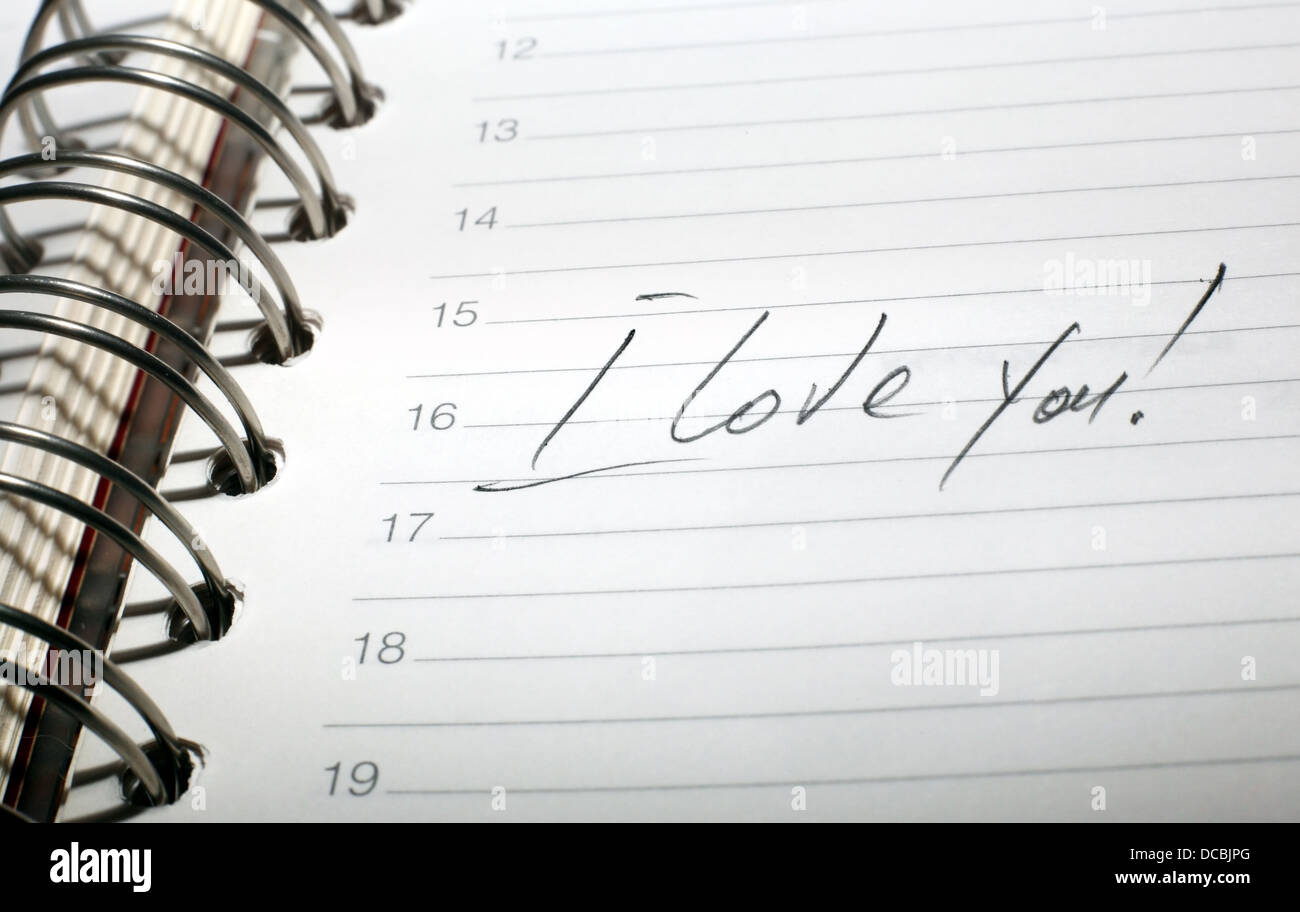 12
13
14
15
16 I love you!
17
18
19
alamy
alamy
Image ID: DCBJPG
www.alamy.com